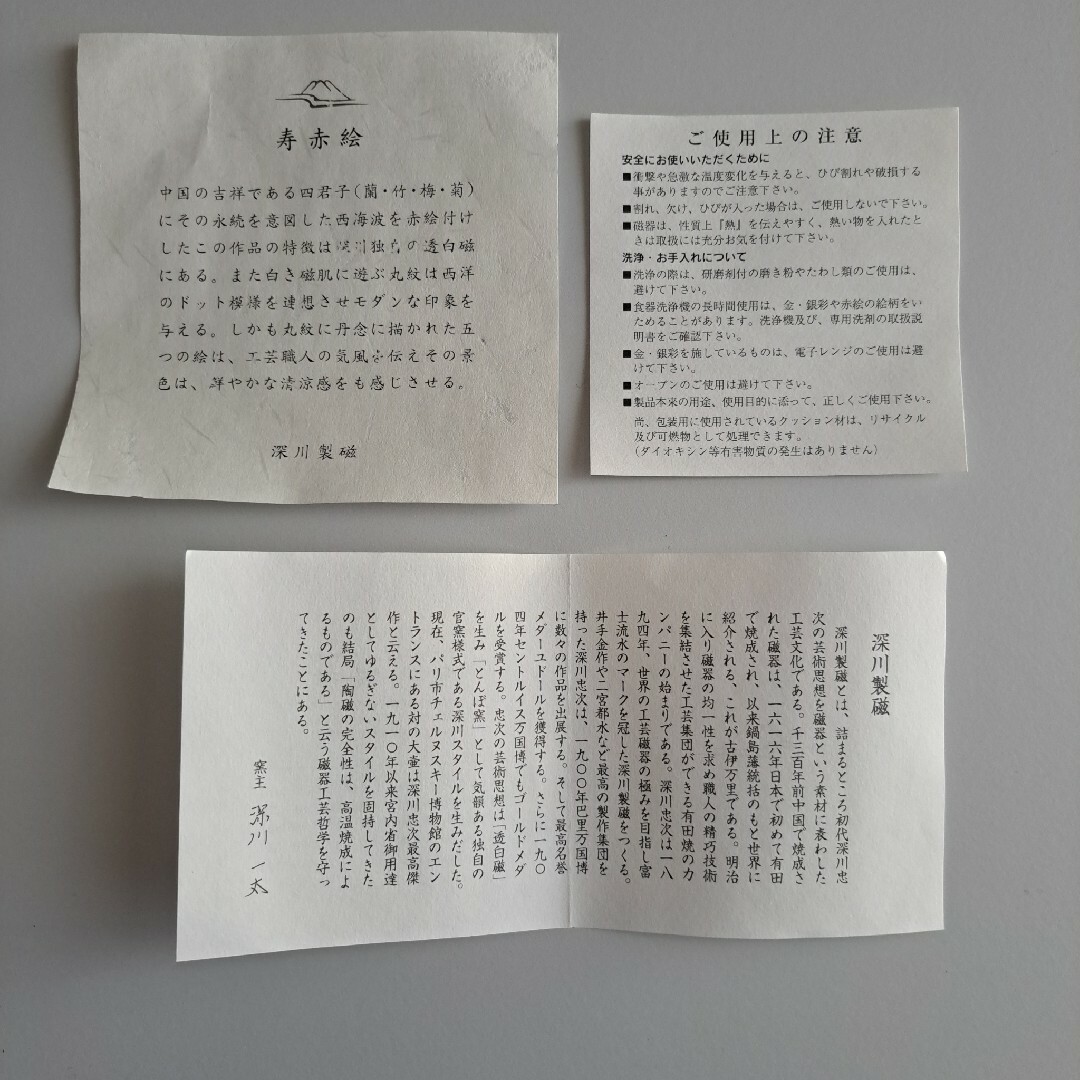 寿赤絵
中国の吉祥である四君子(蘭・竹・梅・菊)
にその永続を意図した西海波を赤絵付け
したこの作品の特徴は深川独自の透白磁
にある。また白き磁肌に遊ぶ丸紋は西洋
のドット模様を連想させモダンな印象を
与える。しかも丸紋に丹念に描かれた五
つの絵は、工芸職人の気風を伝えその景
色は、鮮やかな清涼感をも感じさせる。
深川製磁
ご使用上の注意
安全にお使いいただくために
■衝撃や急激な温度変化を与えると、ひび割れや破損する
事がありますのでご注意下さい。
■割れ、欠け、ひびが入った場合は、ご使用しないで下さい。
■磁器は、性質上『熱』を伝えやすく、熱い物を入れたと
きは取扱には充分お気を付けて下さい。
洗浄・お手入れについて
■洗浄の際は、研磨剤付の磨き粉やたわし類のご使用は、
避けて下さい。
■食器洗浄機の長時間使用は、金・銀彩や赤絵の絵柄をい
ためることがあります。洗浄機及び、専用洗剤の取扱説
明書をご確認下さい。
■金・銀彩を施しているものは、電子レンジのご使用は避
けて下さい。
■オーブンのご使用は避けて下さい。
■製品本来の用途、使用目的に添って、正しくご使用下さい。
尚、包装用に使用されているクッション材は、リサイクル
及び可燃物として処理できます。
(ダイオキシン等有害物質の発生はありません)
深川製磁
深川製磁とは、詰まるところ初代深川忠
次の芸術思想を磁器という素材に表わした
工芸文化である。千三百年前中国で焼成さ
れた磁器は、一六一六年日本で初めて有田
で焼成され、以来鍋島藩統括のもと世界に
紹介される、これが古伊万里である。明治
に入り磁器の均一性を求め職人の精巧技術
を集結させた工芸集団ができる有田焼のカ
ンパニーの始まりである。深川忠次は一八
九四年、世界の工芸磁器の極みを目指し富
士流水のマークを冠した深川製磁をつくる。
井手金作や二宮都水など最高の製作集団を
持った深川忠次は、一九〇〇年巴里万国博
に数々の作品を出展する。そして最高名誉
メダーユドールを獲得する。さらに一九〇
四年セントルイス万国博でもゴールドメダ
ルを受賞する。忠次の芸術思想は「透白磁」
を生み「とんぼ窯」として気韻ある独自の
官窯様式である深川スタイルを生みだした。
現在、パリ市チェルヌスキー博物館のエン
トランスにある対の大壷は深川忠次最高傑
作と云える。一九一〇年以来宮内省御用達
としてゆるぎないスタイルを固持してきた
のも結局「陶磁の完全性は、高温焼成によ
るものである」と云う磁器工芸哲学を守っ
てきたことにある。
窯主 深川 一太